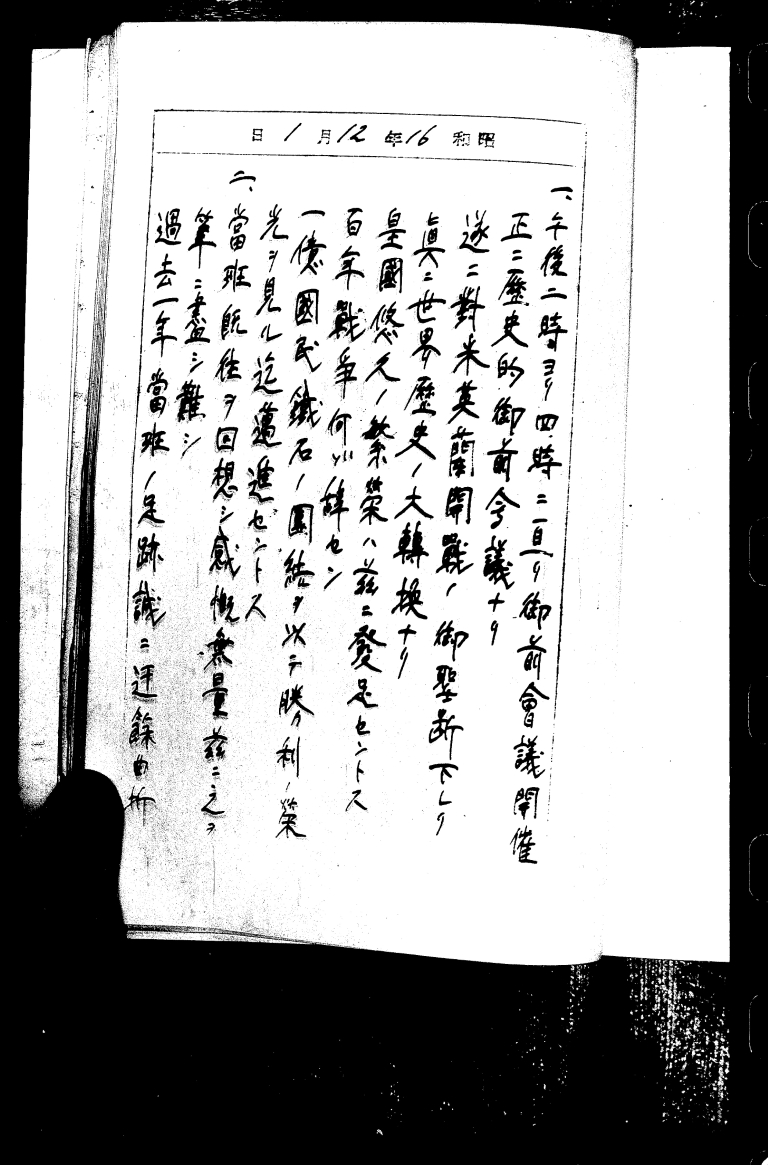 昭和16年12月1日
一、午後二時ヨリ四時ニ亘リ御前會議開催
正ニ歴史的御前会議ナリ
遂ニ對米英蘭開戰ノ御聖断下レリ
眞ニ世界歴史ノ大轉換ナリ
皇國悠久ノ繁榮ハ茲ニ發足セントス
百年戰争何ゾ辞セン
一億國民鐵石ノ團結ヲ以テ勝利ノ榮
光ヲ見ル迄邁進セントス
二、當班既往ヲ回想シ感慨無量茲ニ之ヲ
筆ニ盡シ難シ
過去一年當班ノ足跡誠ニ迂餘曲折